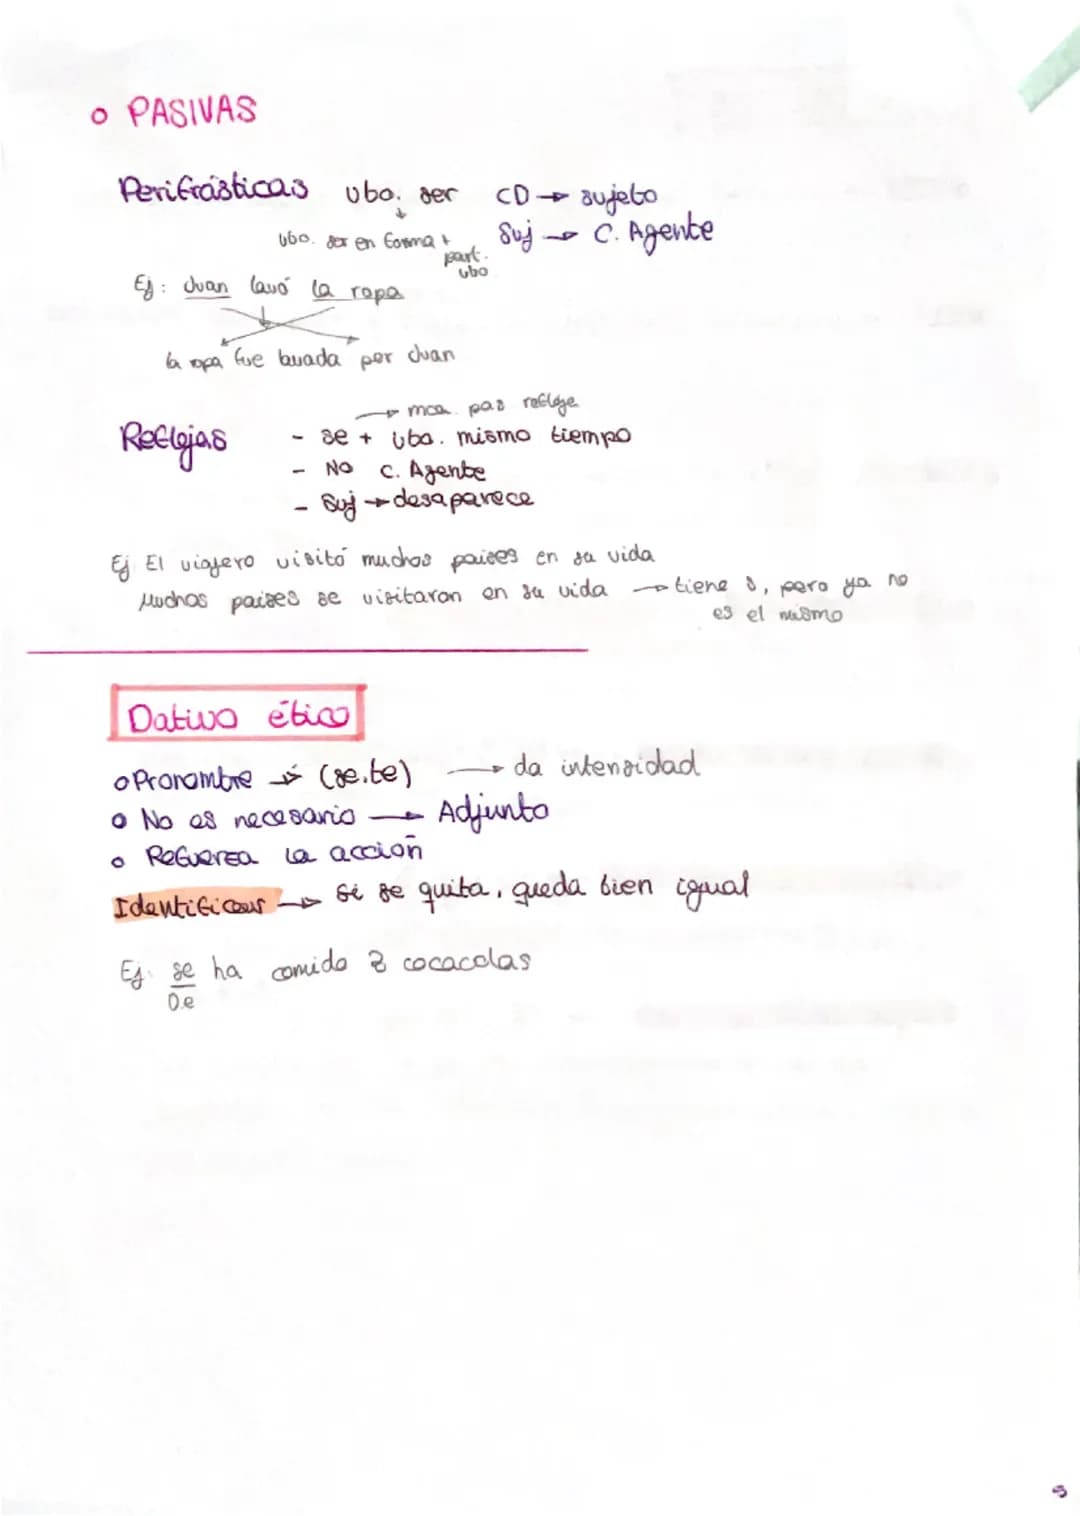 o PASIVAS
Perifrásticas vbo. ser CD → sujeto
vbo. ser en forma + part. vbo
Suj → C. Agente
Ej: Juan lavó la ropa
la ropa fue lavada por Juan
→ mca. pas refleje
Reflejas - se + vbo. mismo tiempo
- NO C. Agente
- Suj → desaparece
Ej El viajero visitó muchos paises en su vida
Muchos paises se visitaron en su vida → tiene s, pero ya no
es el mismo
Dativo ético
o Pronombre → (se, te) → da intensidad
o No es necesario → Adjunto
o Refuerza la acción
Identificar → Si se quita, queda bien igual
Ej. se ha comido 2 cocacolas
D.e
5